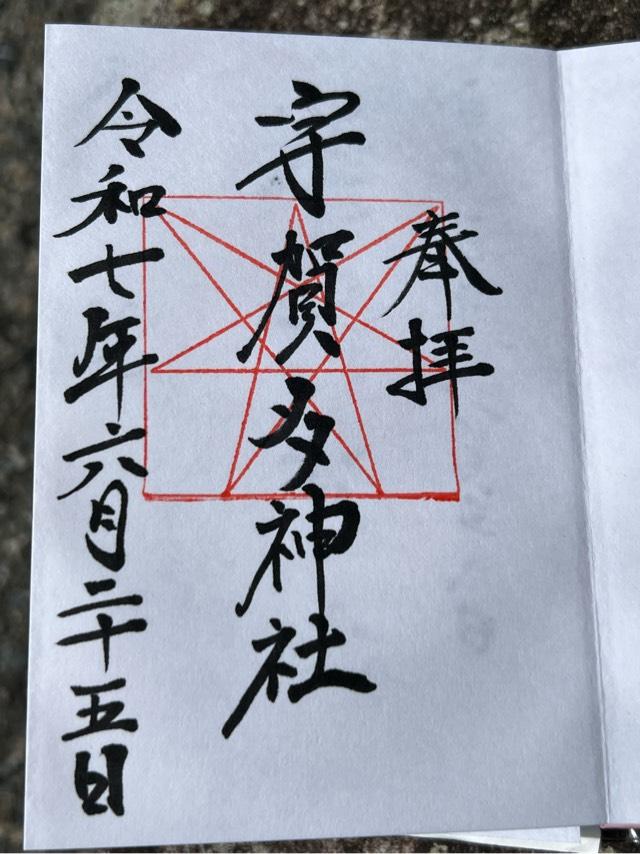 奉拝
宇賀多神社
令和七年六月二十五日